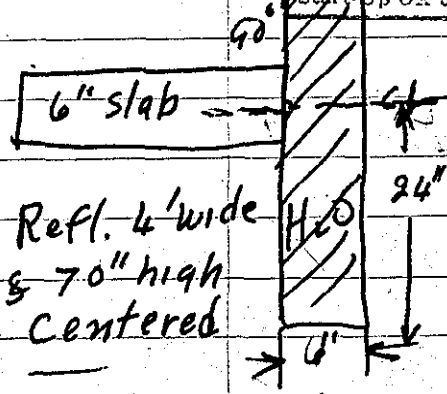 90°
6" slab
℄
24"
Refl. 4' wide
& 70" high
Centered
H₂O
6"